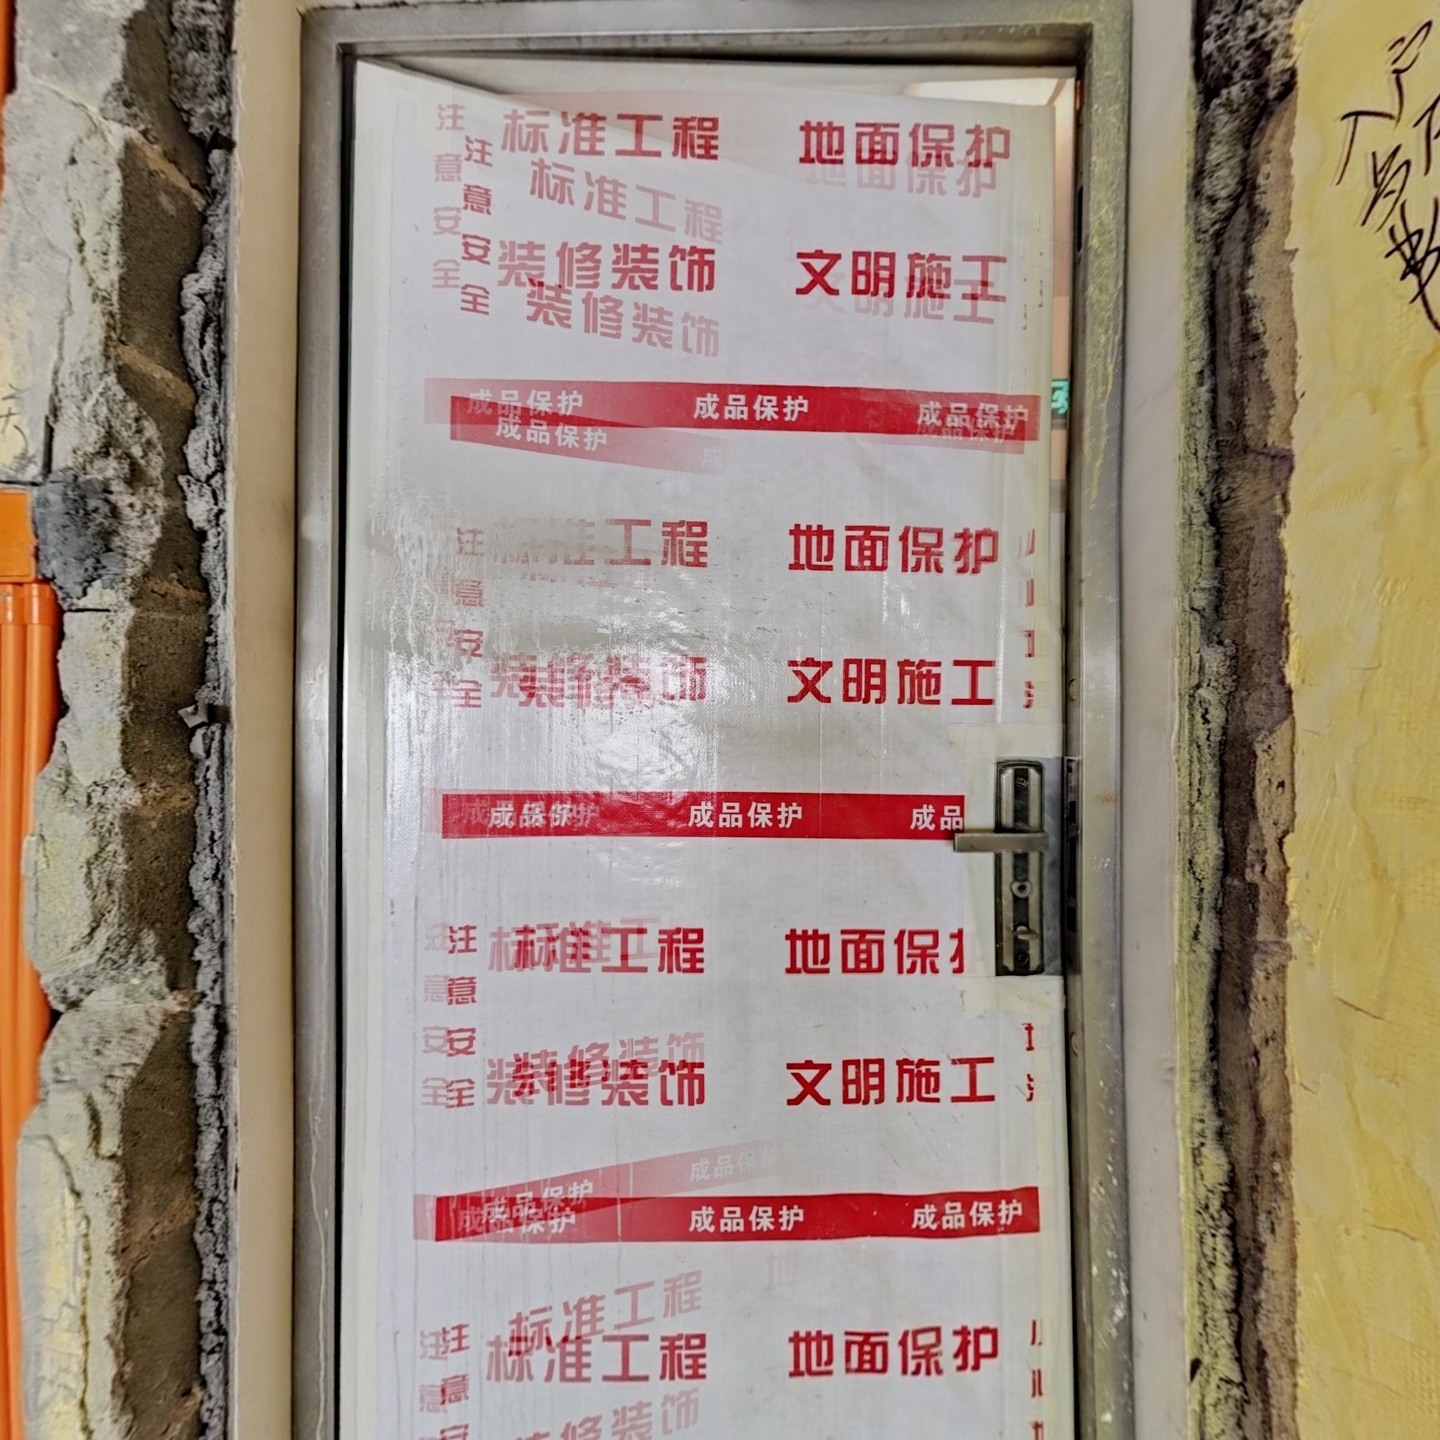 注意安全
注意安全
标准工程 地面保护
标准工程 地面保护
装修装饰 文明施工
装修装饰 文明施工
成品保护 成品保护 成品保护
成品保护 成品保护
注意安全
标准工程 地面保护
装修装饰 文明施工
成品保护 成品保护 成品
注意安全
注意安全
标准工程 地面保
装修装饰 文明施工
装修装饰
成品保护
成品保护
成品保护 成品保护 成品保护
标准工程
注意
注意
标准工程 地面保护
装修装饰